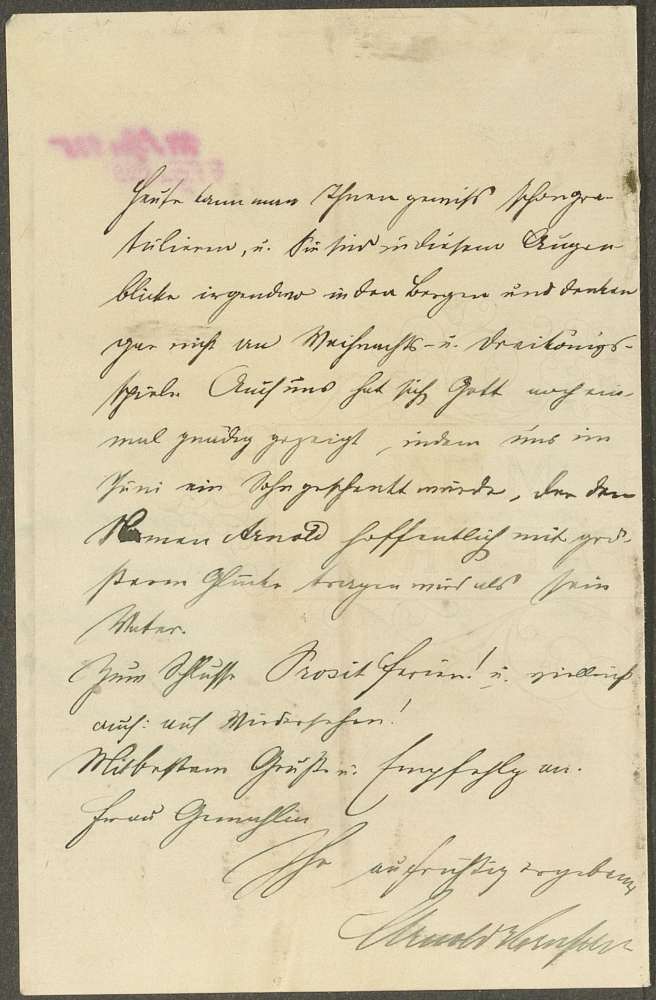 Heute kann man Ihnen gewiß schon gra-
tulieren, u. Sie sind in diesem Augen-
blicke irgendwo in den Bergen und denken
gar nicht an Weihnachts- u. Dreikönigs-
spiele. Auch uns hat sich Gott noch ein-
mal gnädig gezeigt, indem uns im
Juni ein Sohn geschenkt wurde, der den
Namen Arnold hoffentlich mit grö-
ßerem Glücke tragen wird als sein
Vater.
Zum Schlusse Prosit Ferien! u. vielleicht
auch: auf Wiedersehen!
Mit bestem Gruße u. Empfehlg an
Frau Gemahlin
Ihr aufrichtig ergebener
Arnold